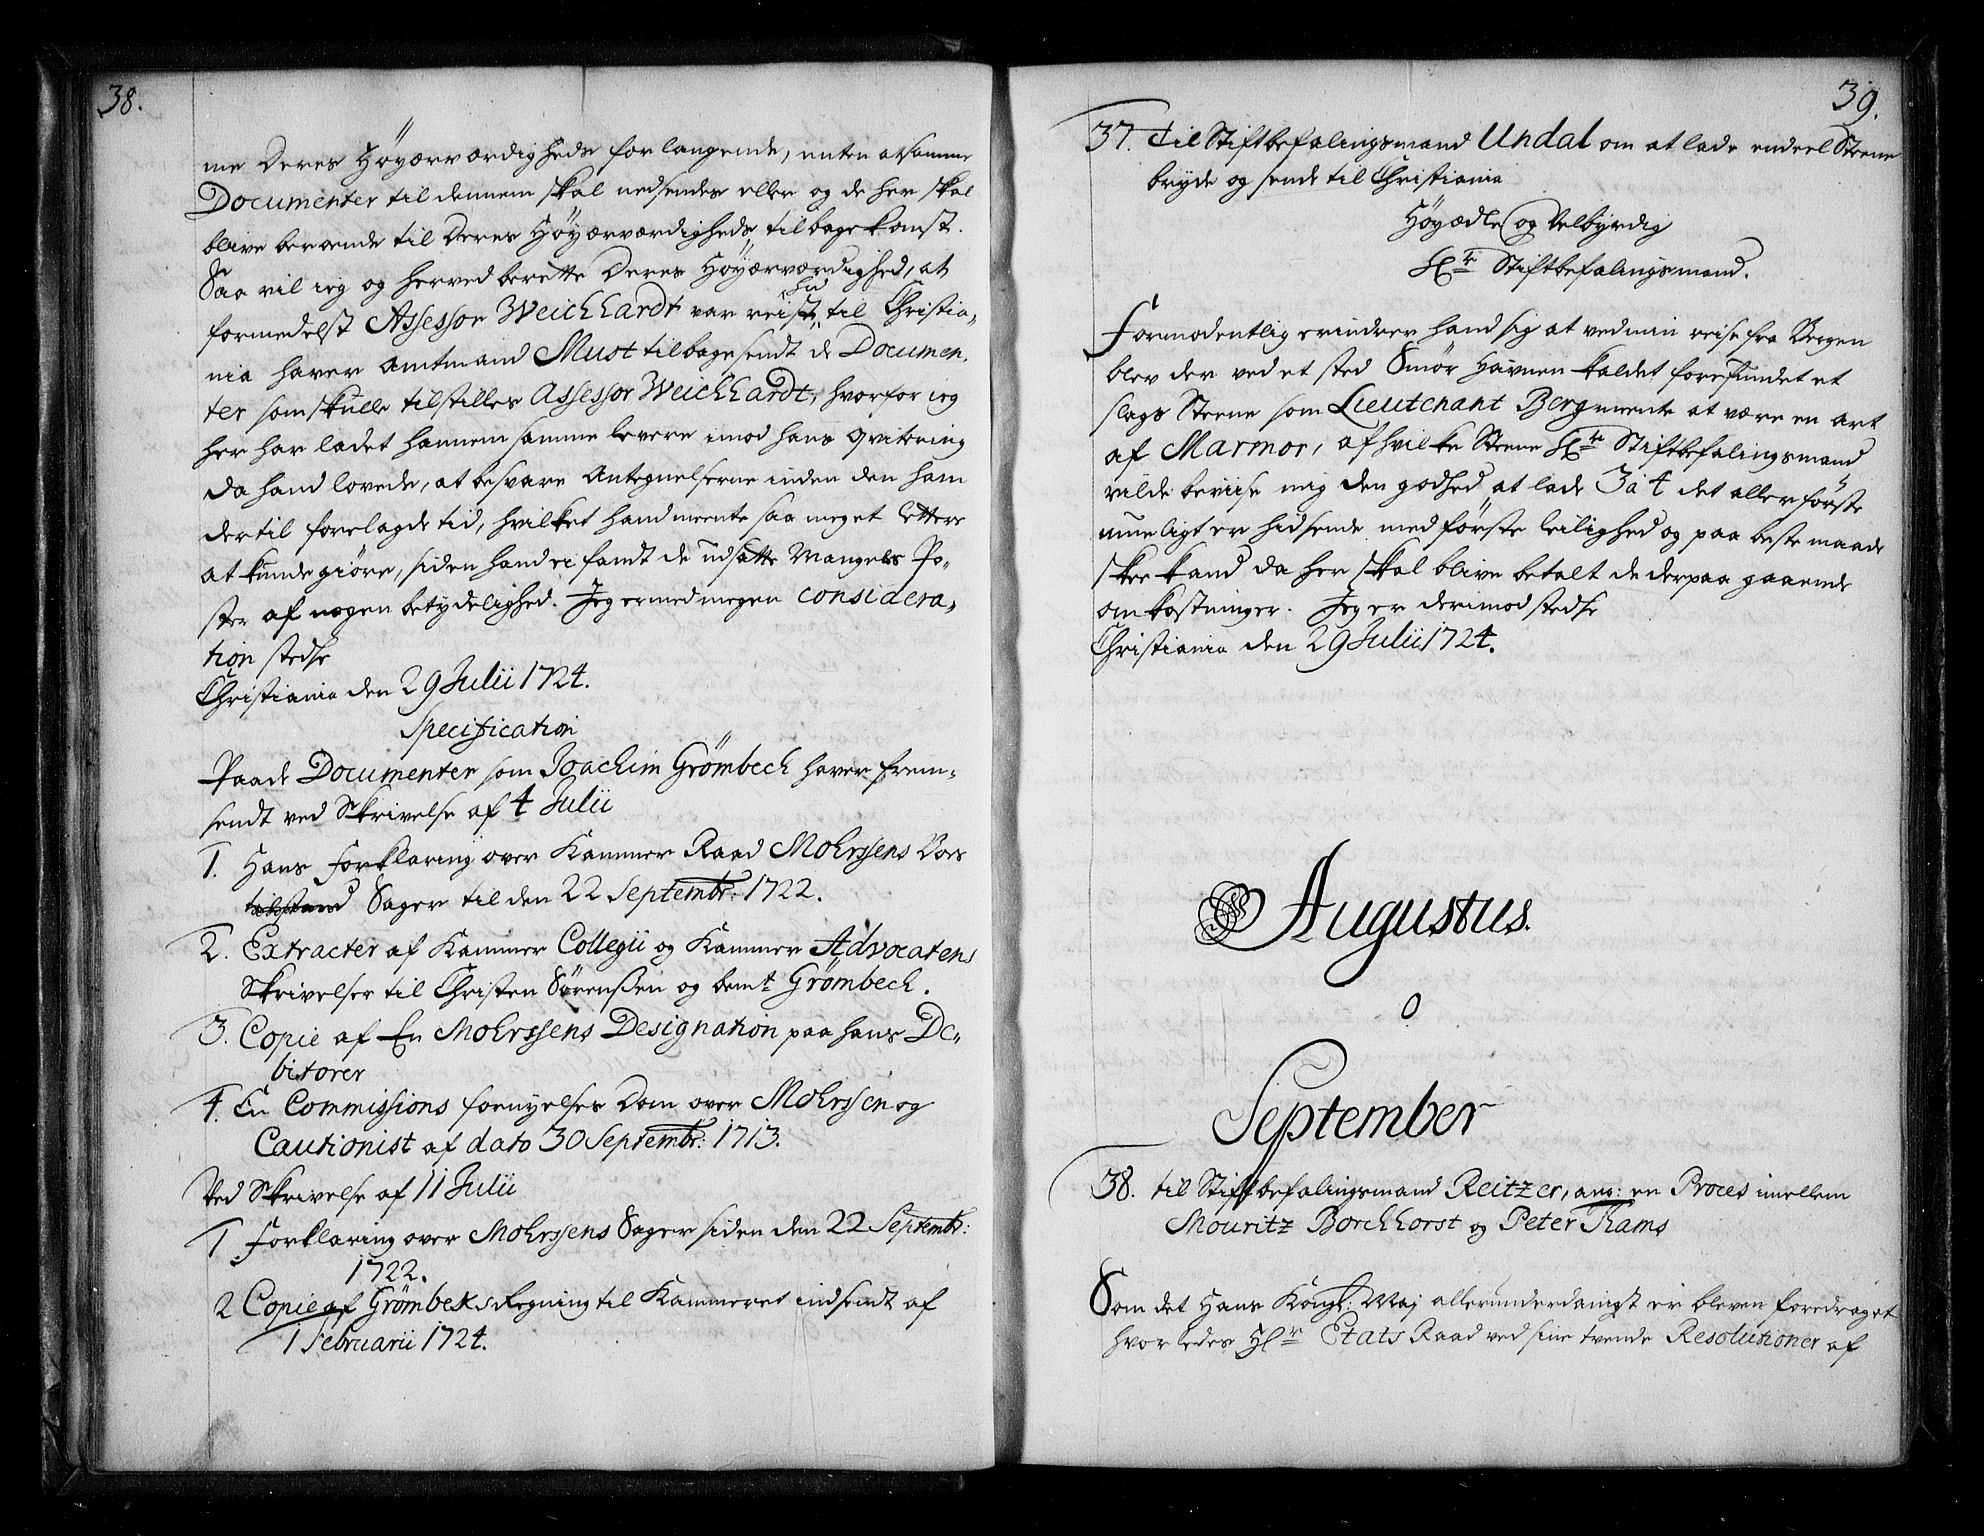 38.
me Deres Høyærværdigheds forlangende, enten atsamme
Documenter til dennem skal nedsendes eller og de her skal
blive beroende til Deres Høyærværdigheds tilbagekomst.
Saa vil ieg og herved berette Deres Høyærværdighed, at
hid
formedelst Assessor Weichhardt var reist til Christia-
nia haver Amtmand Must tilbagesendt de Documen-
ter som skulle tilstilles Assessor Weichhardt, hvorfor ieg
her har ladet hannem samme levere imod hans qvitering
da hand lovede, at besvare Antegnelserne inden den ham
dertil forelagde tid, hvilket hand meente saa meget lettere
at kunde giöre, siden hand ei fandt de udsatte Mangels Po-
ster af nogen betydelighed. Jeg er med megen considera-
tion stedse
Christiania den 29 Julii 1724.
Specification
Paa de Documenter som Joachim Grömbech haver frem-
sendt ved Skrivelse af 4 Julii
1. Hans Forklaring over Kammer Raad Mohrssens Boes
tilstand Sager til den 22 Septembr: 1722.
2. Extracter af Kammer Collegii og Kammer Advocatens
Skrivelser til Christen Sörenssen og bemt Grömbech.
3. Copie af En Mohrssens Designation paa hans De-
bitorer
4. En Commissions fornyelses Dom over Mohrssen og
Cautionist af dato 30 Septembr: 1713.
Ved Skrivelse af 11 Julii
1 Forklaring over Mohrssens Sager siden den 22 Septembr:
1722.
2 Copie af Grömbeks Regning til Kammeret indsendt af
1 Februarii 1724.
39.
37. Til Stiftbefalingsmand Undal om at lade endeel Steene
bryde og sende til Christiania
Höyædle og Velbyrdig
Hr Stiftbefalingsmand.
Formodentlig erindrer hand sig at ved min reise fra Bergen
blev der ved et sted Smör Havnen kaldet forefundet et
slags Steene som Lieutenant Berg meente at være en art
af Marmor, af hvilke Steene Hr Stiftbefalingsmand
vilde beviise mig den godhed at lade 3 a 4 det allerförste
mueligt er hidsende med förste leilighed og paa beste maade
skee kand da her skal blive betalt de derpaa gaaende
omkostninger. Jeg er derimod stedse
Christiania den 29 Julii 1724.
Augustus.
0
September
38. til Stiftbefalingsmand Reitzer, ang: en Proces imellem
Mouritz Borchhorst og Peter Rams
Som det Hans Kongl: Maj allerunderdanigst er bleven foredraget
hvorledes Hr Etats Raad ved sine tvende Resolutioner af